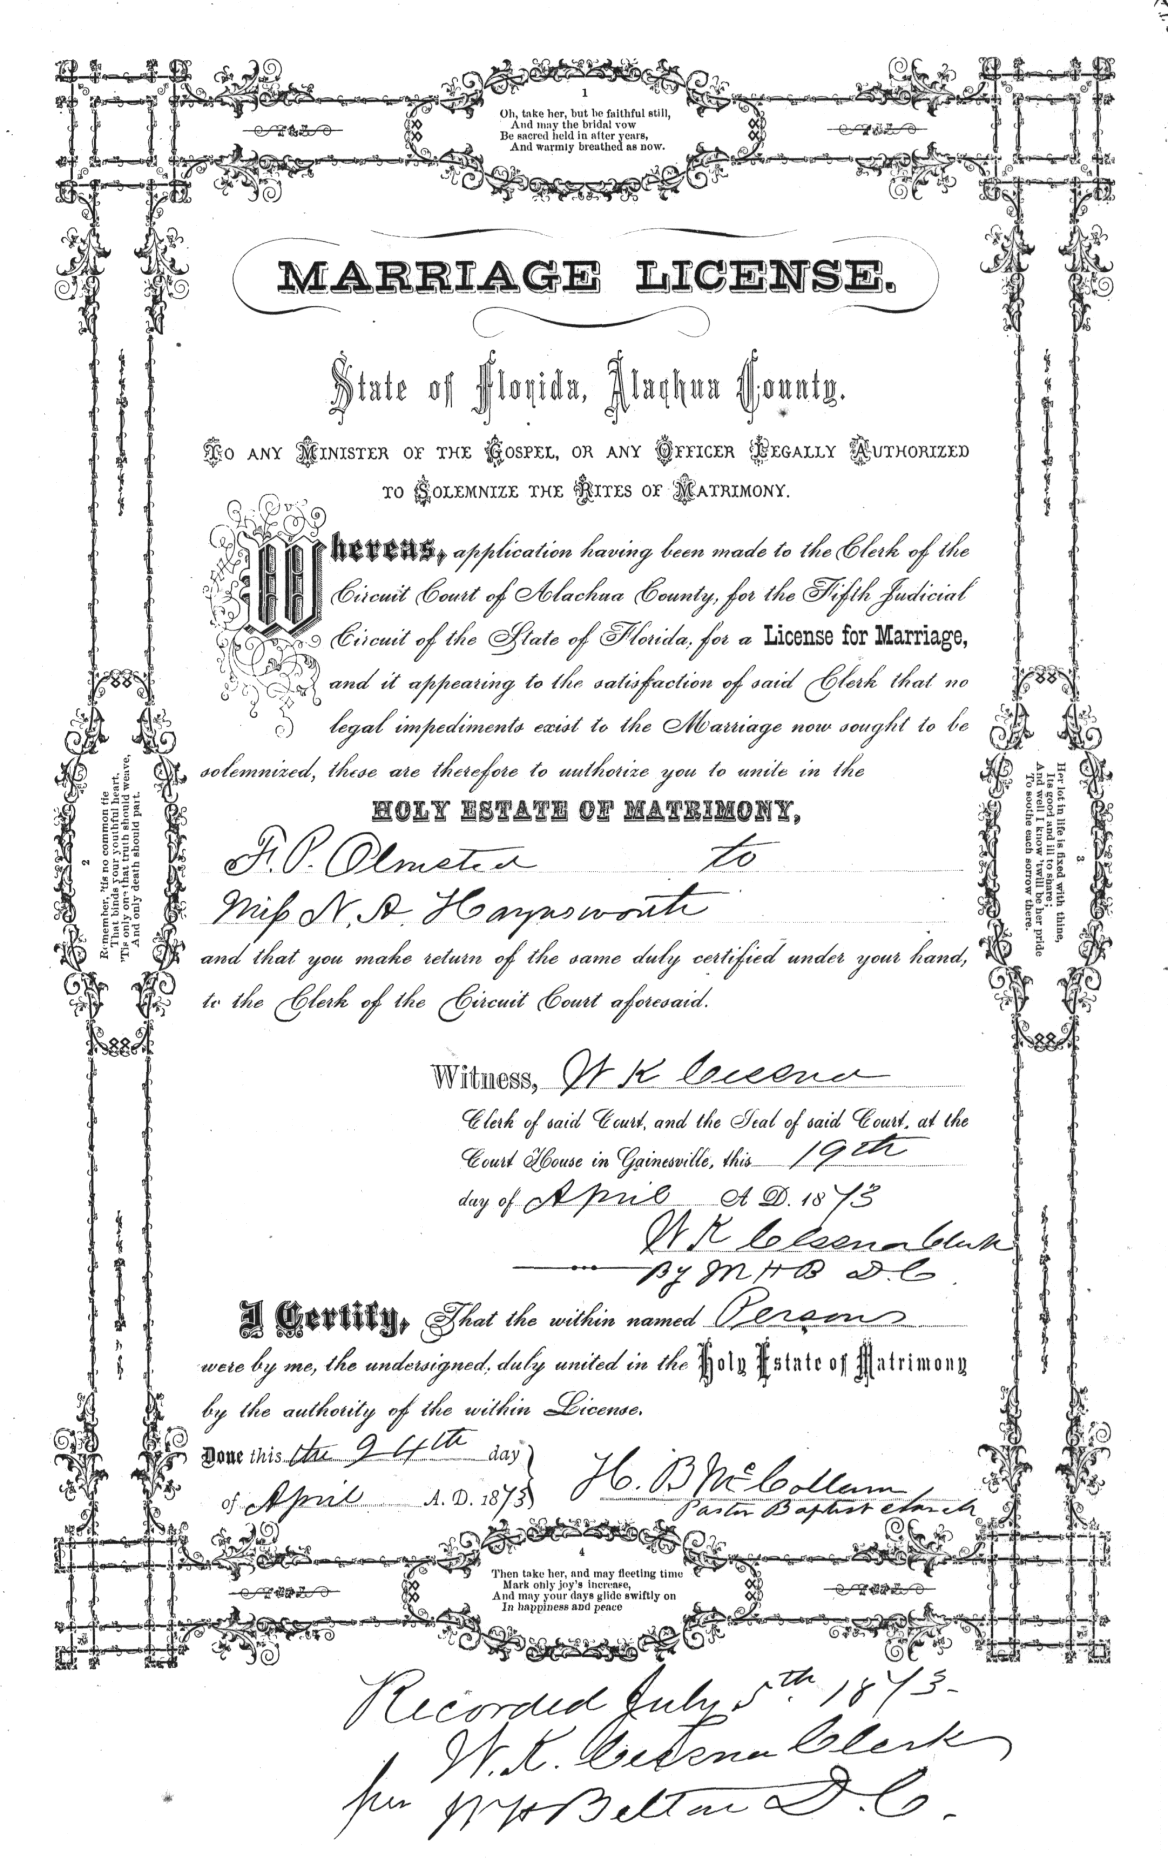 1
Oh, take her, but be faithful still,
And may the bridal vow
Be sacred held in after years,
And warmly breathed as now.
MARRIAGE LICENSE.
State of Florida, Alachua County.
TO ANY MINISTER OF THE GOSPEL, OR ANY OFFICER LEGALLY AUTHORIZED
TO SOLEMNIZE THE RITES OF MATRIMONY.
Whereas, application having been made to the Clerk of the
Circuit Court of Alachua County, for the Fifth Judicial
Circuit of the State of Florida, for a License for Marriage,
and it appearing to the satisfaction of said Clerk that no
legal impediments exist to the Marriage now sought to be
solemnized, these are therefore to authorize you to unite in the
HOLY ESTATE OF MATRIMONY,
F. P. Olmsted to
Miss N. A. Haynsworth
and that you make return of the same duly certified under your hand,
to the Clerk of the Circuit Court aforesaid.
2
Remember, 'tis no common tie
That binds your youthful heart,
'Tis only one that truth should weave,
And only death should part.
3
Her lot in life is fixed with thine,
Its good and ill to share;
And well I know 'twill be her pride
To soothe each sorrow there.
Witness, W K Cessna
Clerk of said Court, and the Seal of said Court, at the
Court House in Gainesville, this 19th
day of April A D. 1873
W K Cessna Clerk
By M H B D. C.
I Certify, That the within named Persons
were by me, the undersigned, duly united in the Holy Estate of Matrimony
by the authority of the within License.
Done this the 24th day
of April A. D. 1873
H. B McCollum
Pastor Baptist church
4
Then take her, and may fleeting time
Mark only joy's increase,
And may your days glide swiftly on
In happiness and peace
Recorded July 5th. 1873-
W. K. Cessna Clerk
per Belton D. C.